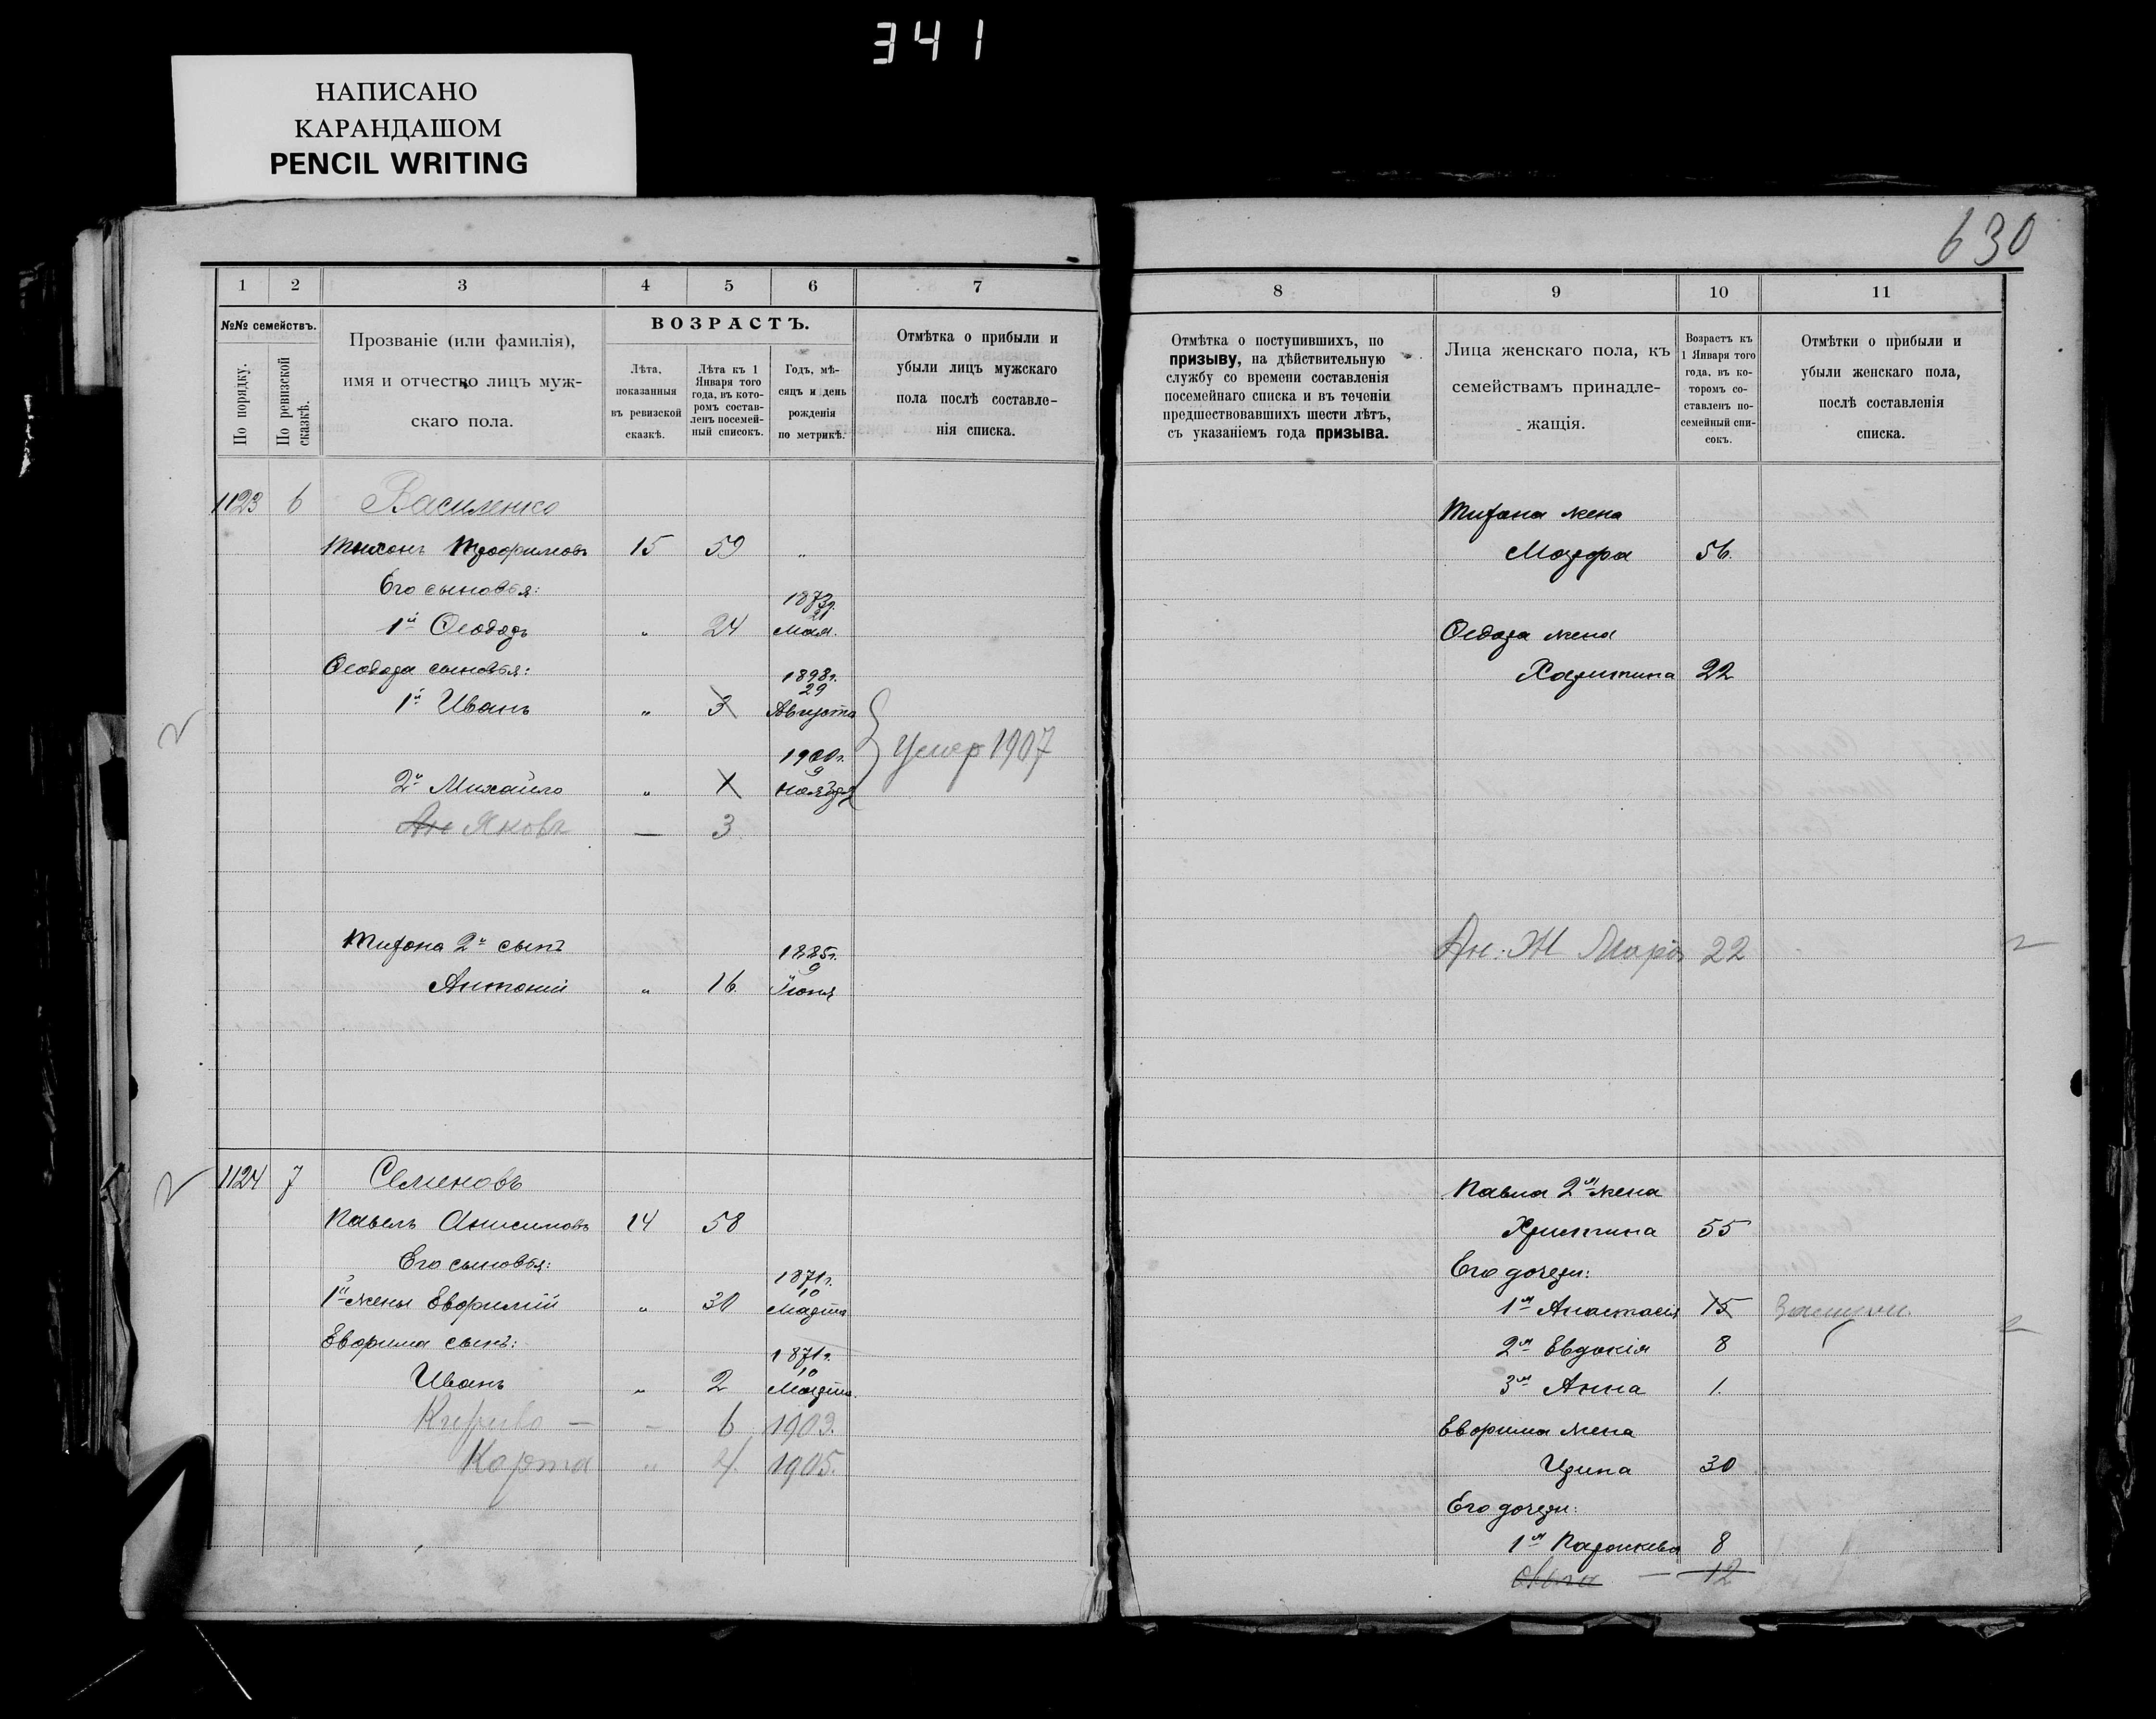 341
НАПИСАНО
КАРАНДАШОМ
PENCIL WRITING
630
1 2 3 4 5 6 7
№№ семействъ.
По порядку.
По ревизской сказкѣ.
Прозваніе (или фамилія),
имя и отчество лицъ муж-
скаго пола.
ВОЗРАСТЪ.
Лѣта,
показанныя
въ ревизской
сказкѣ.
Лѣта къ 1
Января того
года, въ кото-
ромъ состав-
ленъ посемей-
ный списокъ.
Годъ, мѣ-
сяцъ и день
рожденія
по метрикѣ.
Отмѣтка о прибыли и
убыли лицъ мужскаго
пола послѣ составле-
нія списка.
1123 6 Василенко
Тихонъ Трофимовъ 15 59 „
Его сыновья:
1873г.
21
1й Ѳеодоръ „ 24 Мая.
Ѳеодора сыновья:
1898г.
29
1й Иванъ „ 3 Августа
Умер 1907
1900г.
9
2й Михайло „ 1 Ноября
Ан Яковъ — 3
Тихона 2й сынъ
1885г.
9
Антоній „ 16 Іюня
1124 7 Семеновъ
Павелъ Анисимовъ 14 58
Его сыновья:
1871г.
10
1й жены Евфимій „ 30 Марта
Евфима сынъ:
1871г.
10
Иванъ „ 2 Марта.
— - 6 1903.
„ 4. 1905.
8 9 10 11
Отмѣтка о поступившихъ, по
призыву, на дѣйствительную
службу со времени составленія
посемейнаго списка и въ теченіи
предшествовавшихъ шести лѣтъ,
съ указаніемъ года призыва.
Лица женскаго пола, къ
семействамъ принадле-
жащія.
Возрастъ къ
1 Января того
года, въ ко-
торомъ со-
ставленъ по-
семейный спи-
сокъ.
Отмѣтки о прибыли и
убыли женскаго пола,
послѣ составленія
списка.
Тихона жена
Мавра 56.
Ѳедора жена
Харитина 22
Ан. Ж Марія 22
Павла 2я жена
Христина 55
Его дочери:
1я Анастасія 15
2я Евдокія 8
3я Анна 1.
Евфима жена
Ирина 30
Его дочери:
1я Параскева 8
— 12